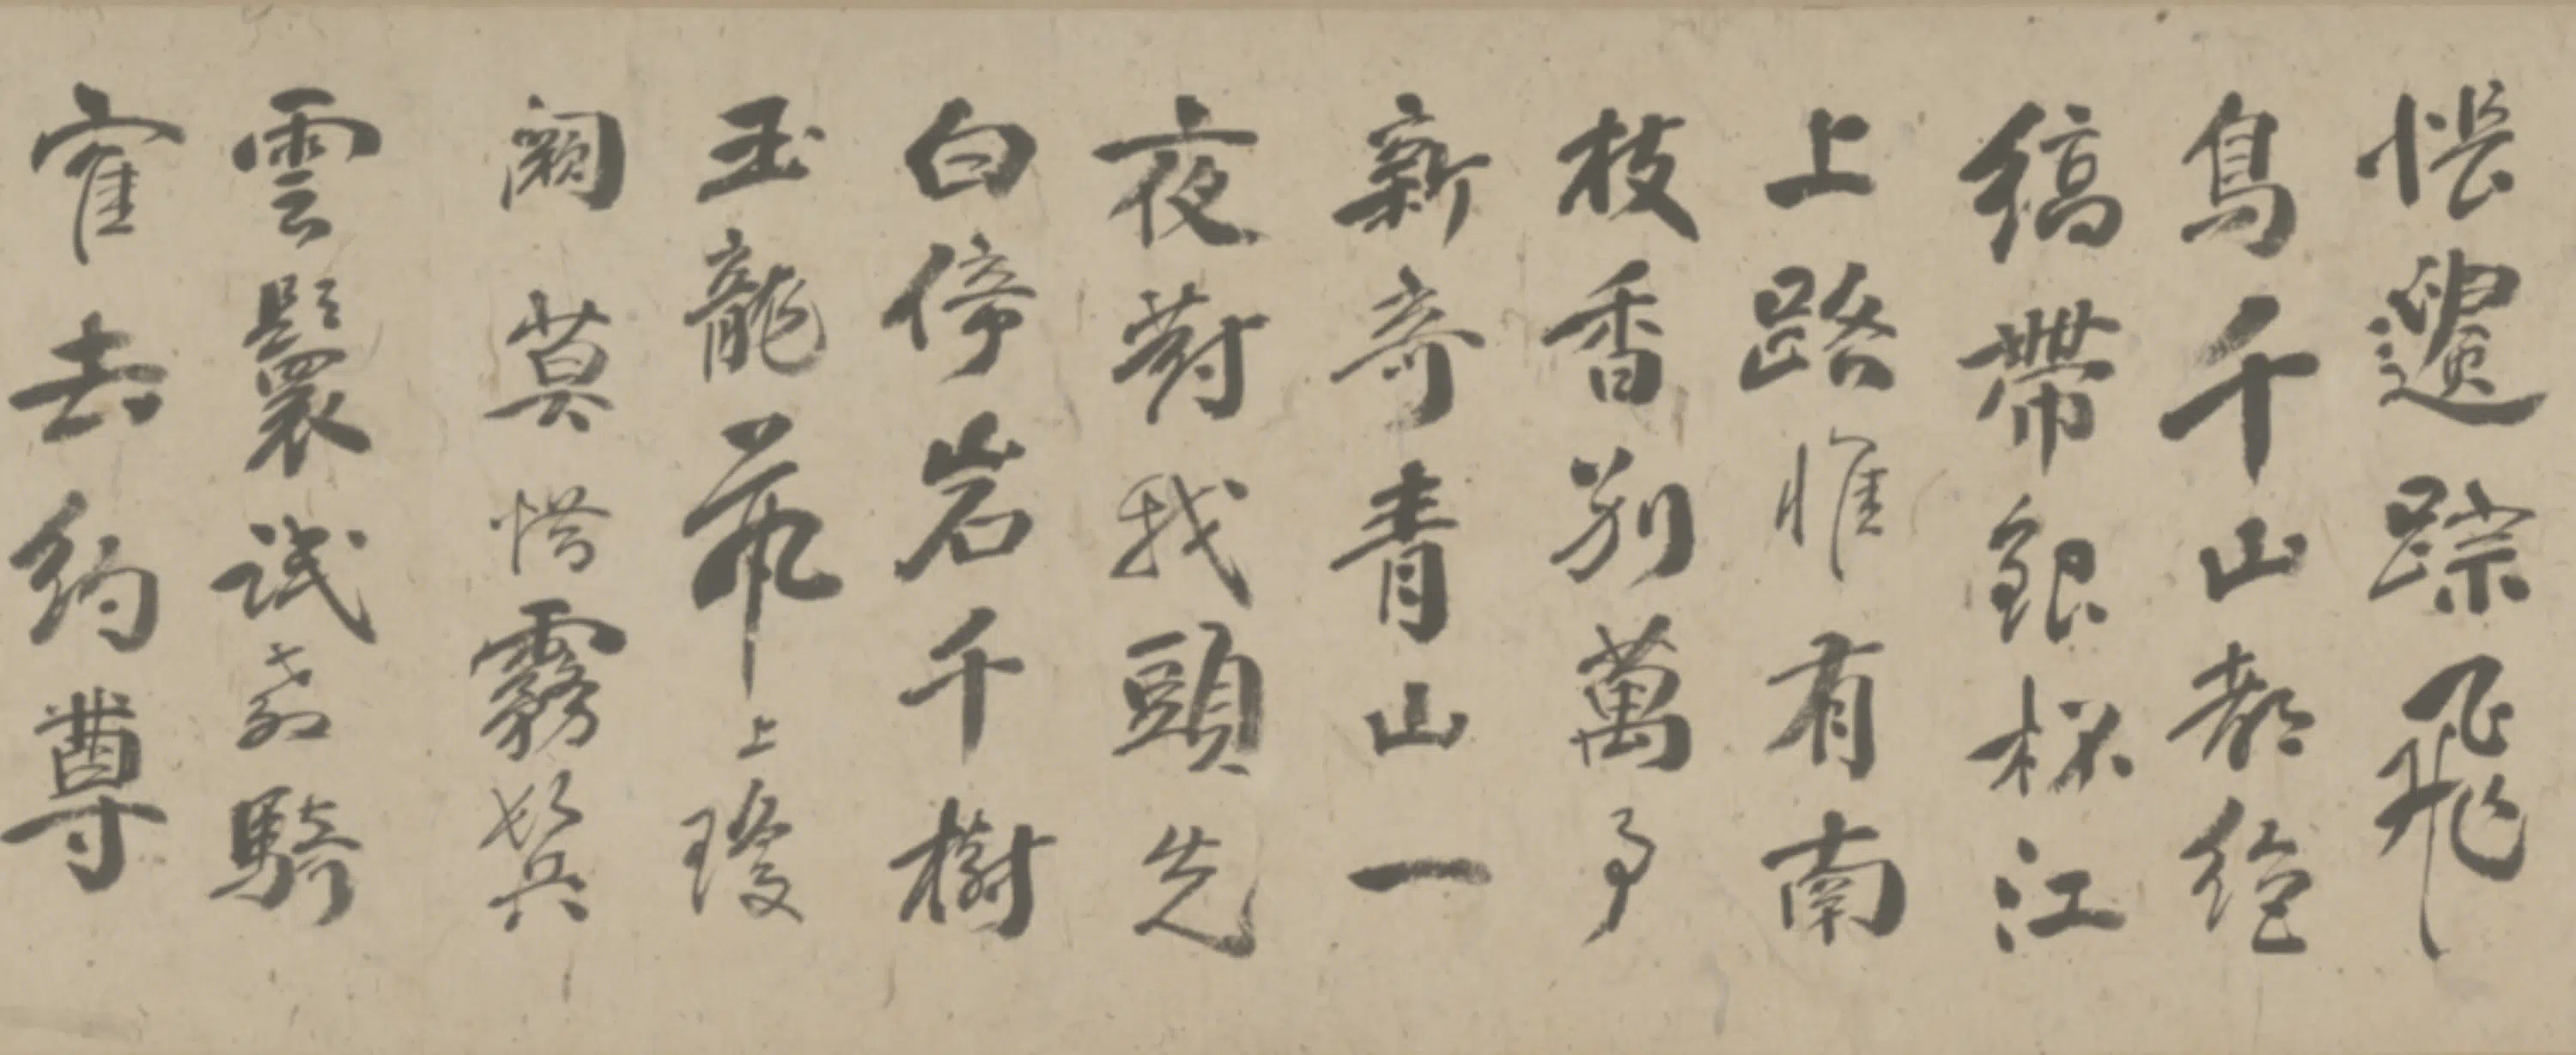 悵遺踪飛
鳥千山都絕
縞帶銀杯江
上路惟有南
枝香別萬事
新奇青山一
夜對我頭先
白倚岩千樹
玉龍飛上瓊
闕莫惜霧鬢
雲鬟試教騎
寉去約尊